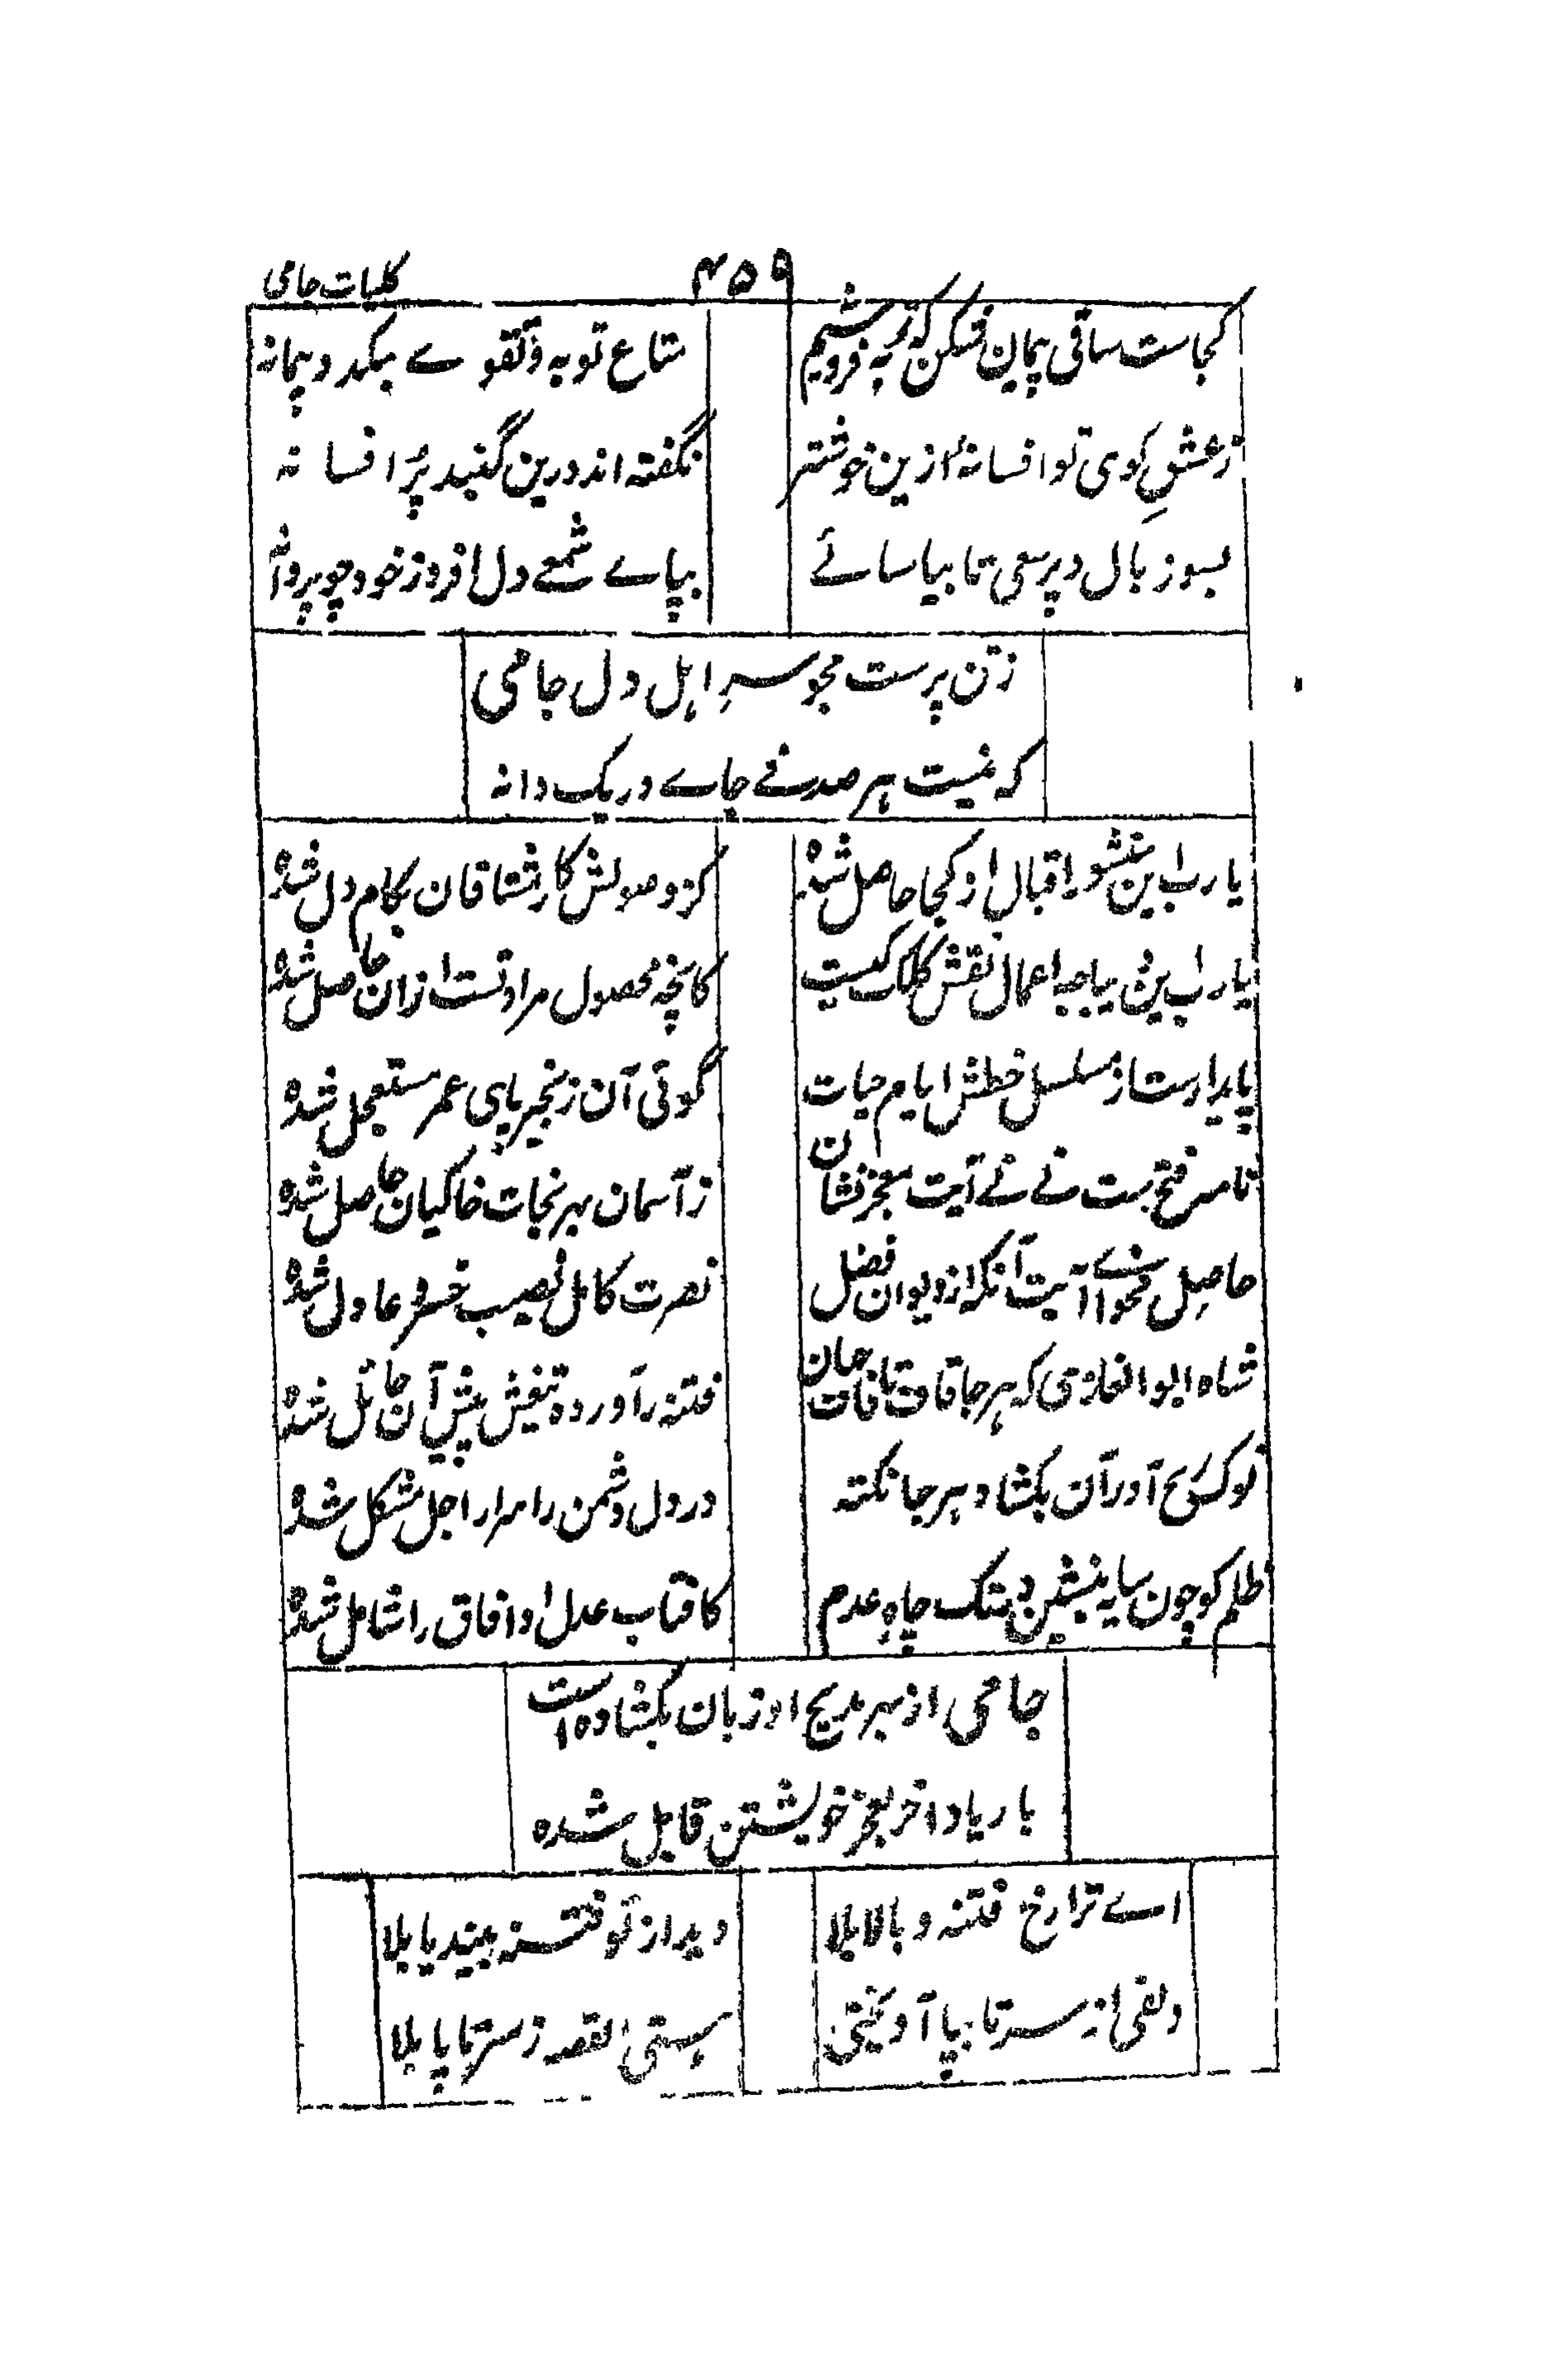 ۴۵۹
کلیات جامی
کجاست ساقی پیمان شکن که بفروشیم
متاع توبه و تقوے بیکد و پیمانه
ز عشقِ کوی تو افسانۂ ازین خوشتر
نگفته اند درین گنبد پُر افسانه
بسوز بال و پر سعی تا بیاسائے
بپاے شمعے دل افروز خود چو پروانه
ز تن پرست مجو سرِ اهل دل جامی
که نیست هر صدفے جاے در یک دانه
یارب این منشور اقبال از کجا حاصل شده
کز وصولش کار مشتاقان بکام دل شده
یارب این دیباجه اعمال نقش کلک کیست
کانچه محصول مرادتست ازان حاصل شده
پایدارست از مسلسل خطش ایام حیات
گوئی آن زنجیر پای عمر مستعجل شده
نامه فتح ست نے نے آیت معجز نشان
ز آسمان بهر نجات خاکیان حاصل شده
حاصِل فحواے آیت آنکه از دیوان فضل
نصرت کامل نصیب خسرو عادل شده
شاه ابوالغازی که هر جا قاف تا قاف جهان
فتنه را آورده تیغش پیش آن حائل شده
نوک رمح آور آن بکشاد هر جا نکته
در دل دشمن را مرار اجل مشکل شده
ظلم کو چون سایه بنشین در تنگ چاهِ عدم
کافتاب عدل او آفاق را شامل شده
جامی از بهر مدیح او زبان بکشاده است
بار یاد اخر بعجز خویشتن قایل شده
اے ترا رخ فتنه و بالا بلا
دید از تو فتنه بیند یا بلا
زلفی از سر تا بپا آویختی
هستی القصه ز سر تا پا بلا